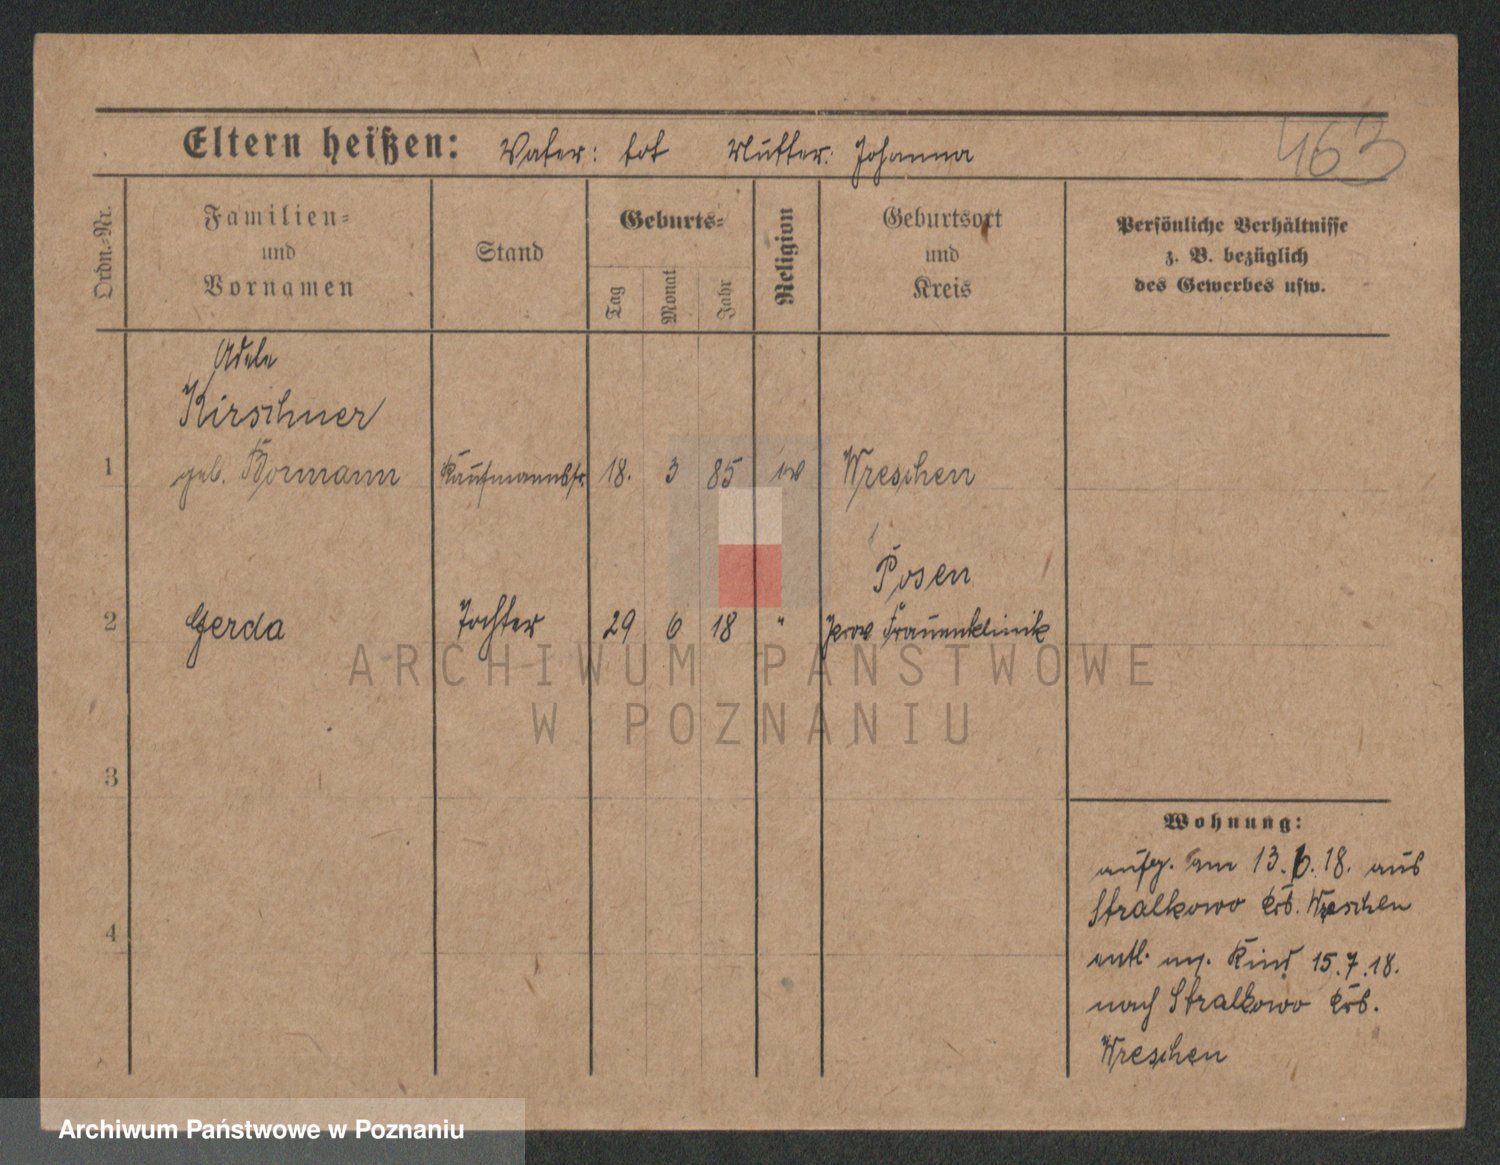 463
Eltern heißen: Vater: tot Mutter: Johanna
Ordn.-Nr.
Familien-
und
Vornamen
Stand
Geburts-
Tag
Monat
Jahr
Religion
Geburtsort
und
Kreis
Persönliche Verhältnisse
z. B. bezüglich
des Gewerbes usw.
Adele
Kirschner
1 geb. Bormann Kaufmannsfr 18. 3 85 ev Wreschen
Posen
2 Gerda Tochter 29 6 18 " Prov Frauenklinik
3
4
Wohnung:
aufg. am 13.6.18. aus
Stralkowo Krs. Wreschen
entl. m. Kind 15.7.18.
nach Stralkowo Krs.
Wreschen
ARCHIWUM PAŃSTWOWE
W POZNANIU
Archiwum Państwowe w Poznaniu